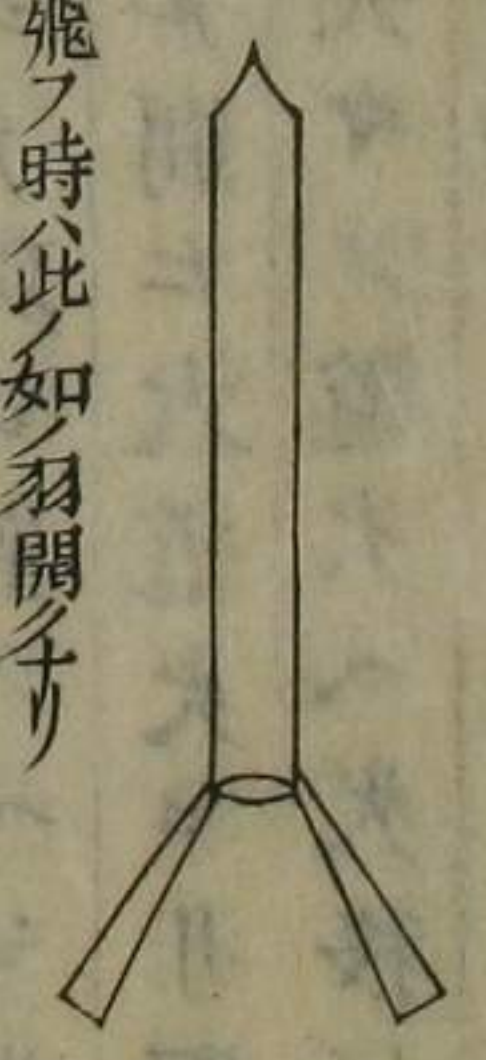 飛フ時ハ此ノ如ノ羽開クナリ